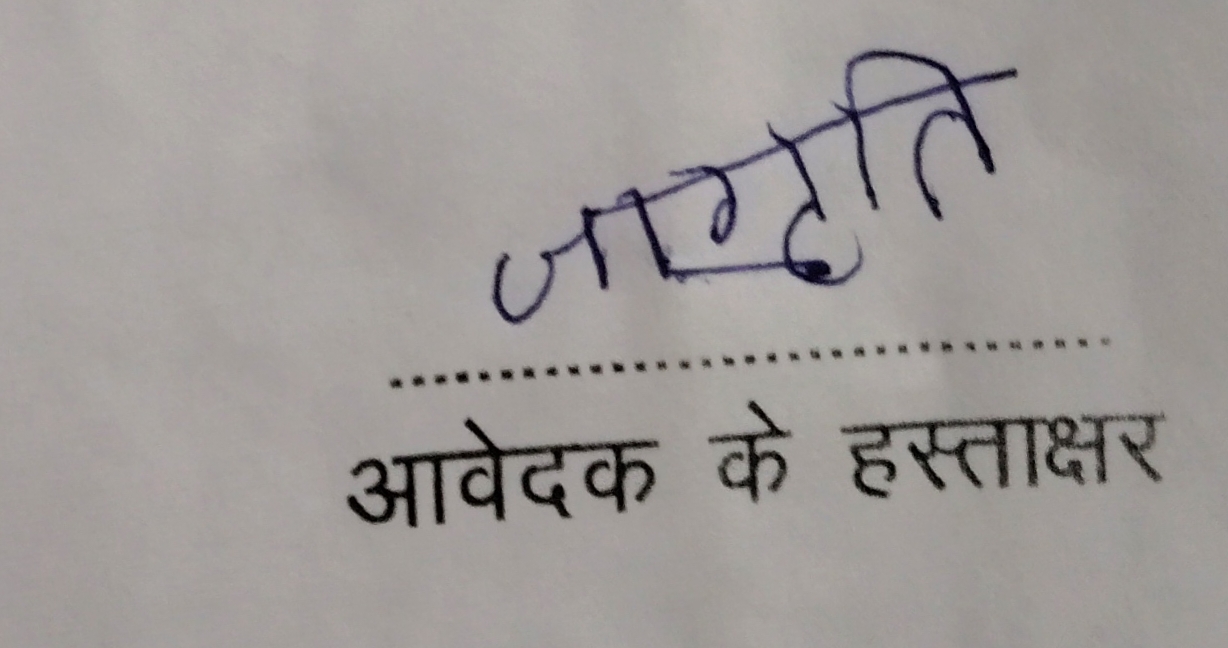 जागृति
आवेदक के हस्ताक्षर